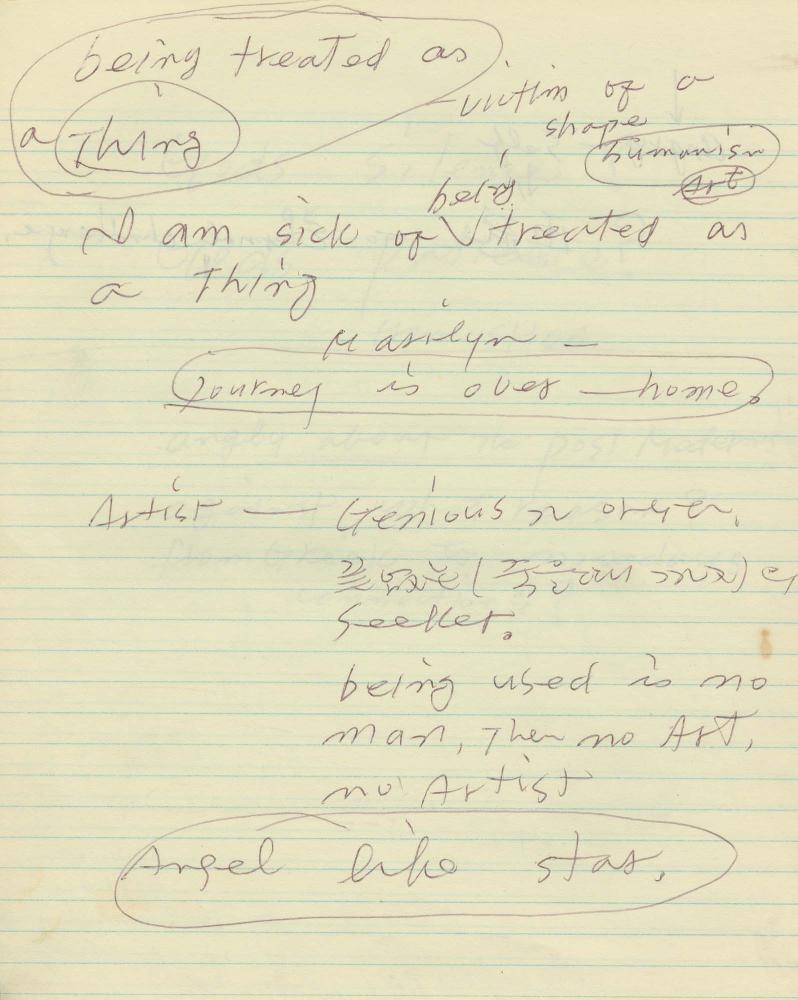 being treated as
a Thing
victim of a
shape
humanism
Art
being
I am sick of treated as
a Thing
Marilyn —
Journey is over — home.
Artist — Genious
끝없는 (죽을때까지)의
seeker.
being used is no
man, Then no Art,
no Artist
Angel like star.